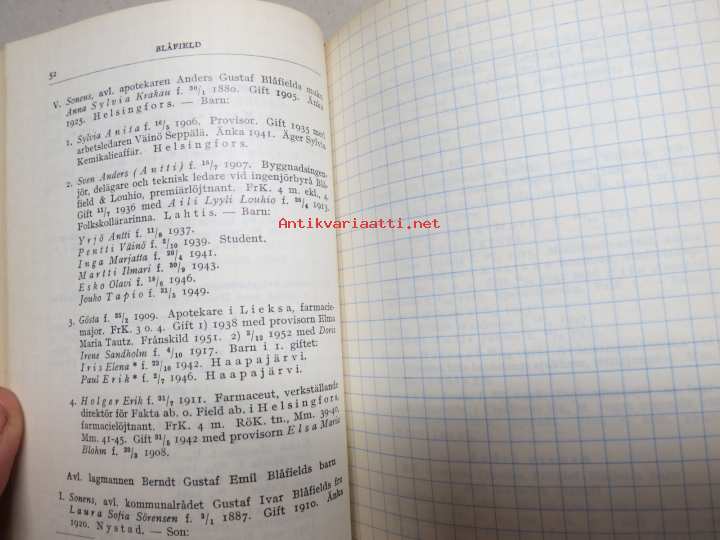 52
BLÅFIELD
V. Sonens, avl. apotekaren Anders Gustaf Blåfields maka
Anna Sylvia Krakau f. 30/1 1880. Gift 1905. Änka
1925. Helsingfors. — Barn:
1. Sylvia Anita f. 16/5 1906. Provisor. Gift 1935 med
arbetsledaren Väinö Seppälä. Änka 1941. Äger Sylvia
Kemikalieaffär. Helsingfors.
2. Sven Anders (Antti) f. 15/7 1907. Byggnadsingen-
jör, delägare och teknisk ledare vid ingenjörbyrå Blå-
field & Louhio, premiärlöjtnant. FrK. 4 m. ekl., 4.
Gift 11/7 1936 med Aili Lyyli Louhio f. 26/4 1913.
Folkskollärarinna. Lahtis. — Barn:
Yrjö Antti f. 11/8 1937.
Pentti Väinö f. 2/10 1939. Student.
Inga Marjatta f. 20/4 1941.
Martti Ilmari f. 30/9 1943.
Esko Olavi f. 18/6 1946.
Jouko Tapio f. 21/5 1949.
Antikvariaatti.net
3. Gösta f. 25/2 1909. Apotekare i Lieksa, farmacie-
major. FrK. 3 o. 4. Gift 1) 1938 med provisorn Elma
Maria Tautz. Frånskild 1951. 2) 2/12 1952 med Doris
Irene Sandholm f. 4/10 1917. Barn i 1. giftet:
Iris Elena * f. 23/10 1942. Haapajärvi.
Paul Erik * f. 2/7 1946. Haapajärvi.
4. Holger Erik f. 31/7 1911. Farmaceut, verkställande
direktör för Fakta ab. o. Field ab. i Helsingfors,
farmacielöjtnant. FrK. 4 m. RöK. tn., Mm. 39-40,
Mm. 41-45. Gift 31/5 1942 med provisorn Elsa Maria
Blohm f. 29/3 1908.
Avl. lagmannen Berndt Gustaf Emil Blåfields barn
I. Sonens, avl. kommunalrådet Gustaf Ivar Blåfields fru
Laura Sofia Sörensen f. 3/1 1887. Gift 1910. Änka
1920. Nystad. — Son: